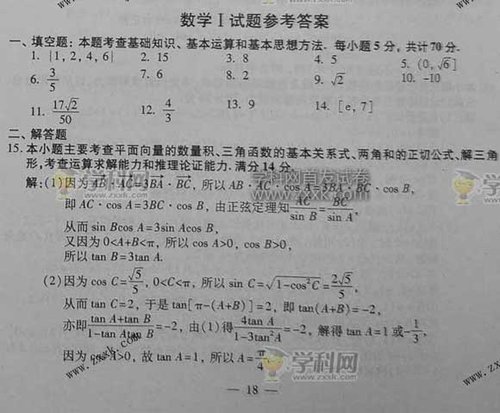 数学Ⅰ试题参考答案
一、填空题：本题考查基础知识、基本运算和基本思想方法．每小题5分，共计70分．
1. {1，2，4，6} 2. 15 3. 8 4. 5 5. (0，√6]
6. 3/5 7. 6 8. 2 9. √2 10. -10
11. 17√2/50 12. 4/3 13. 9 14. [e，7]
二、解答题
15. 本小题主要考查平面向量的数量积、三角函数的基本关系式、两角和的正切公式、解三角
形，考查运算求解能力和推理论证能力．满分14分．
解：(1)因为AB·AC=3BA·BC，所以AB·AC·cos A=3BA·BC·cos B，
即AC·cos A=3BC·cos B，由正弦定理知AC/sin B=BC/sin A，
从而sin Bcos A=3sin Acos B，
又因为0<A+B<π，所以cos A>0，cos B>0，
所以tan B=3tan A．
(2)因为cos C=√5/5，0<C<π，所以sin C=√1-cos²C=2√5/5，
从而tan C=2，于是tan[π-(A+B)]=2，即tan(A+B)=-2，
亦即tan A+tan B/1-tan Atan B=-2，由(1)得4tan A/1-3tan²A=-2，解得tan A=1或-1/3，
因为cos A>0，故tan A=1，所以A=π/4．
— 18 —
学科网首发试卷
www.zxxk.com
学科网
www.zxxk.com